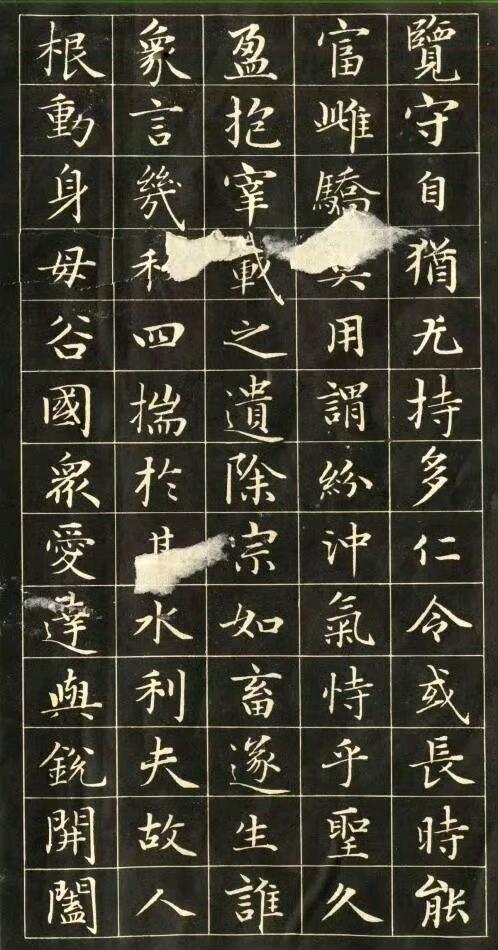 覽守自猶无持多仁令或長時能
富雌驕用謂紛沖氣恃乎聖久
盈抱宰載之遺除宗如畜遂生誰
象言幾四揣於水利夫故人
根動身母谷國眾愛達與銳開闔